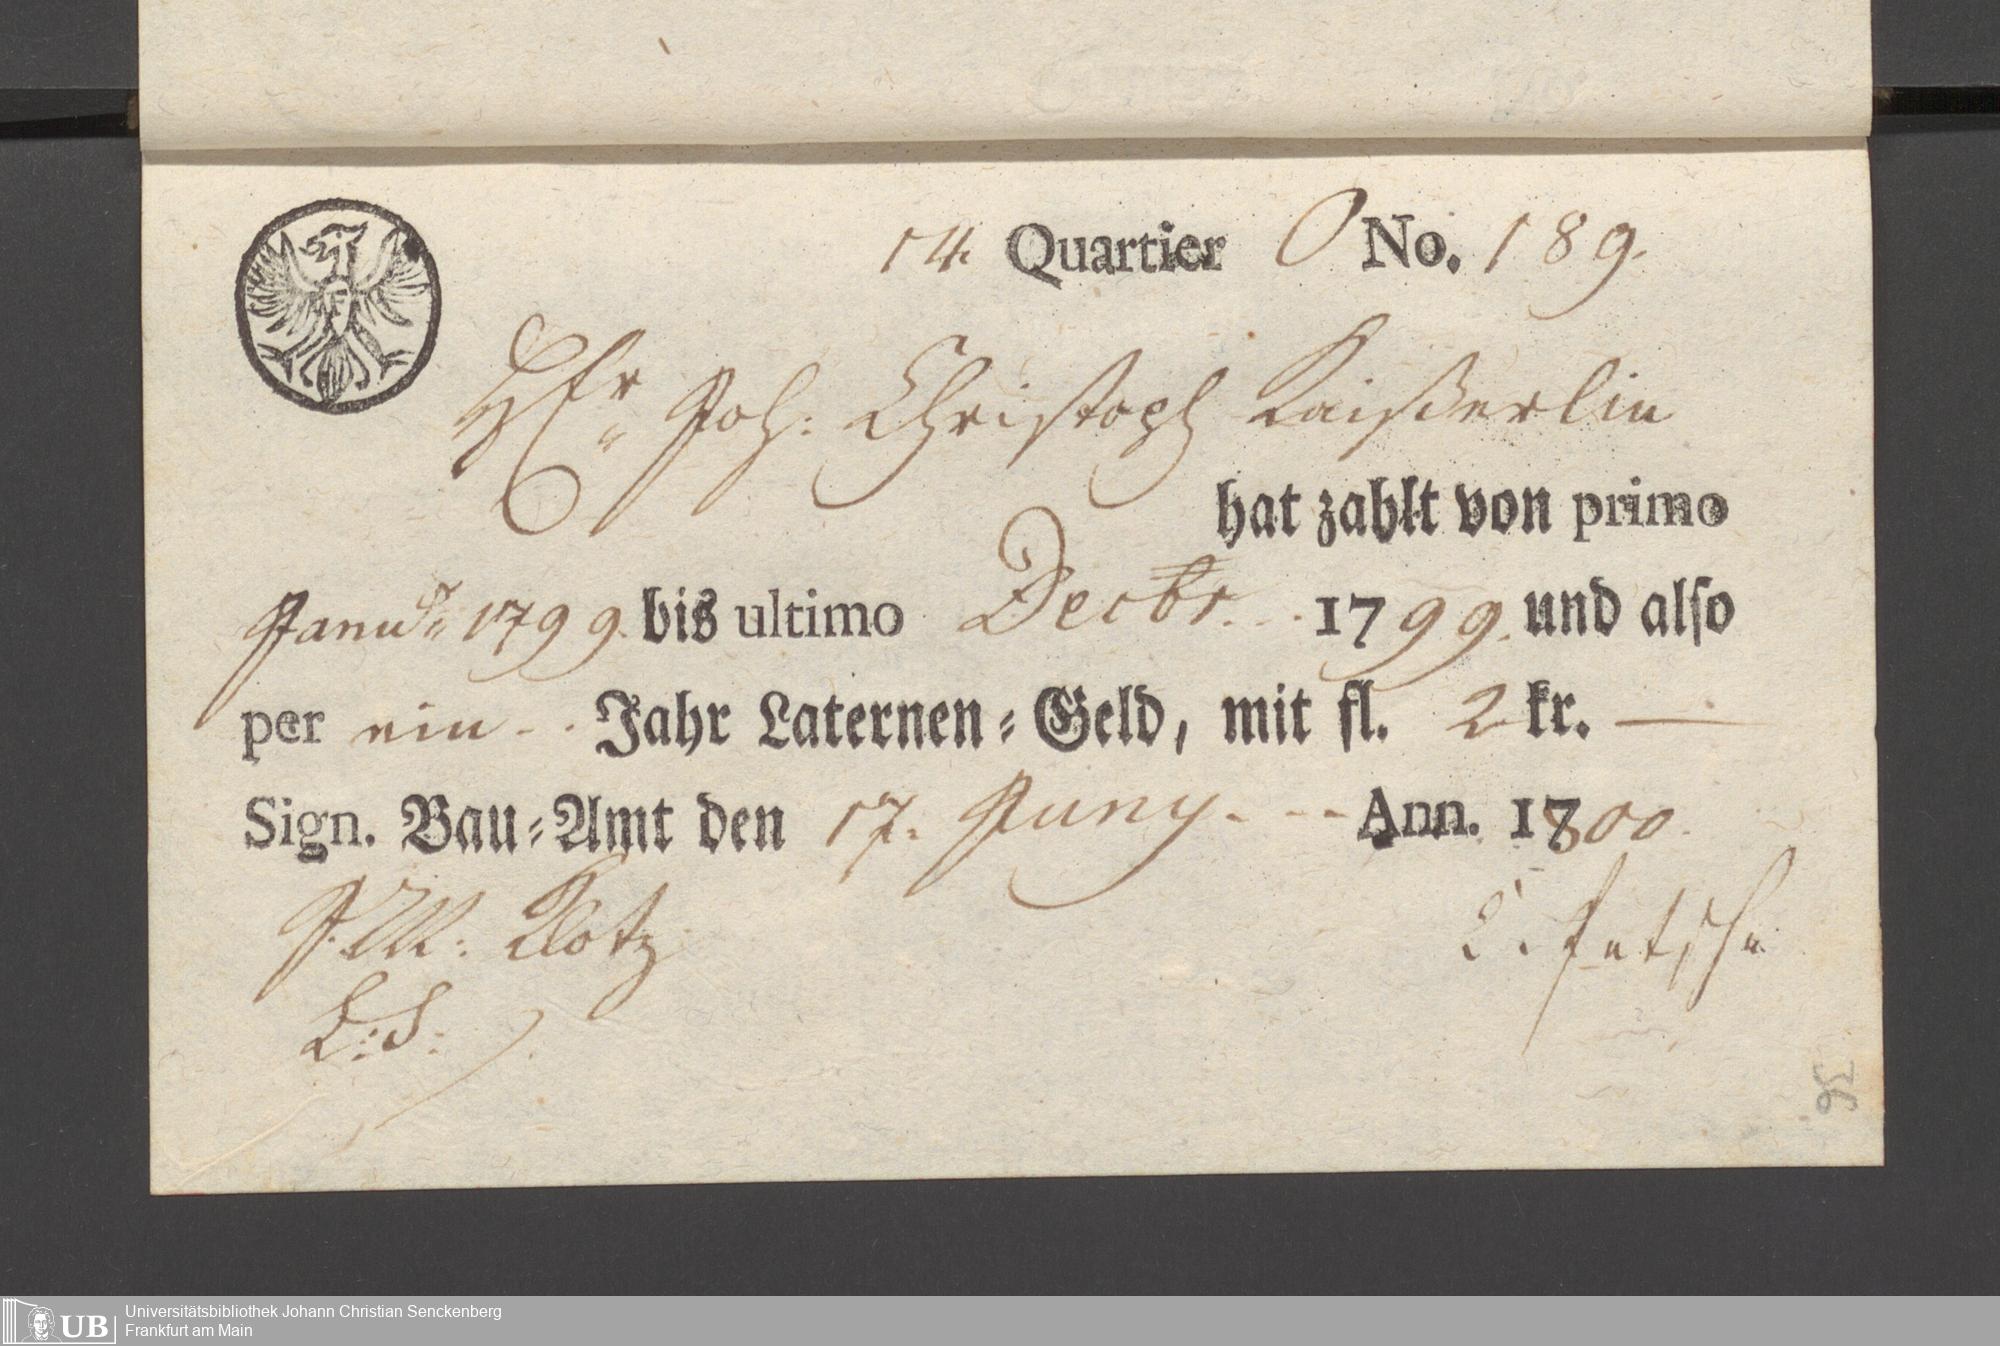 14. Quartier O No. 189.
HEr Joh: Christoph Kaißerlin
hat zahlt von primo
Janu^r 1799. bis ultimo Decbr. 1799. und also
per ein Jahr Laternen-Geld, mit fl. 2 kr. —
Sign. Bau-Amt den 17. Juny. Ann. 1800.
J. M: Klotz
L: S:
36
UB
Universitätsbibliothek Johann Christian Senckenberg
Frankfurt am Main